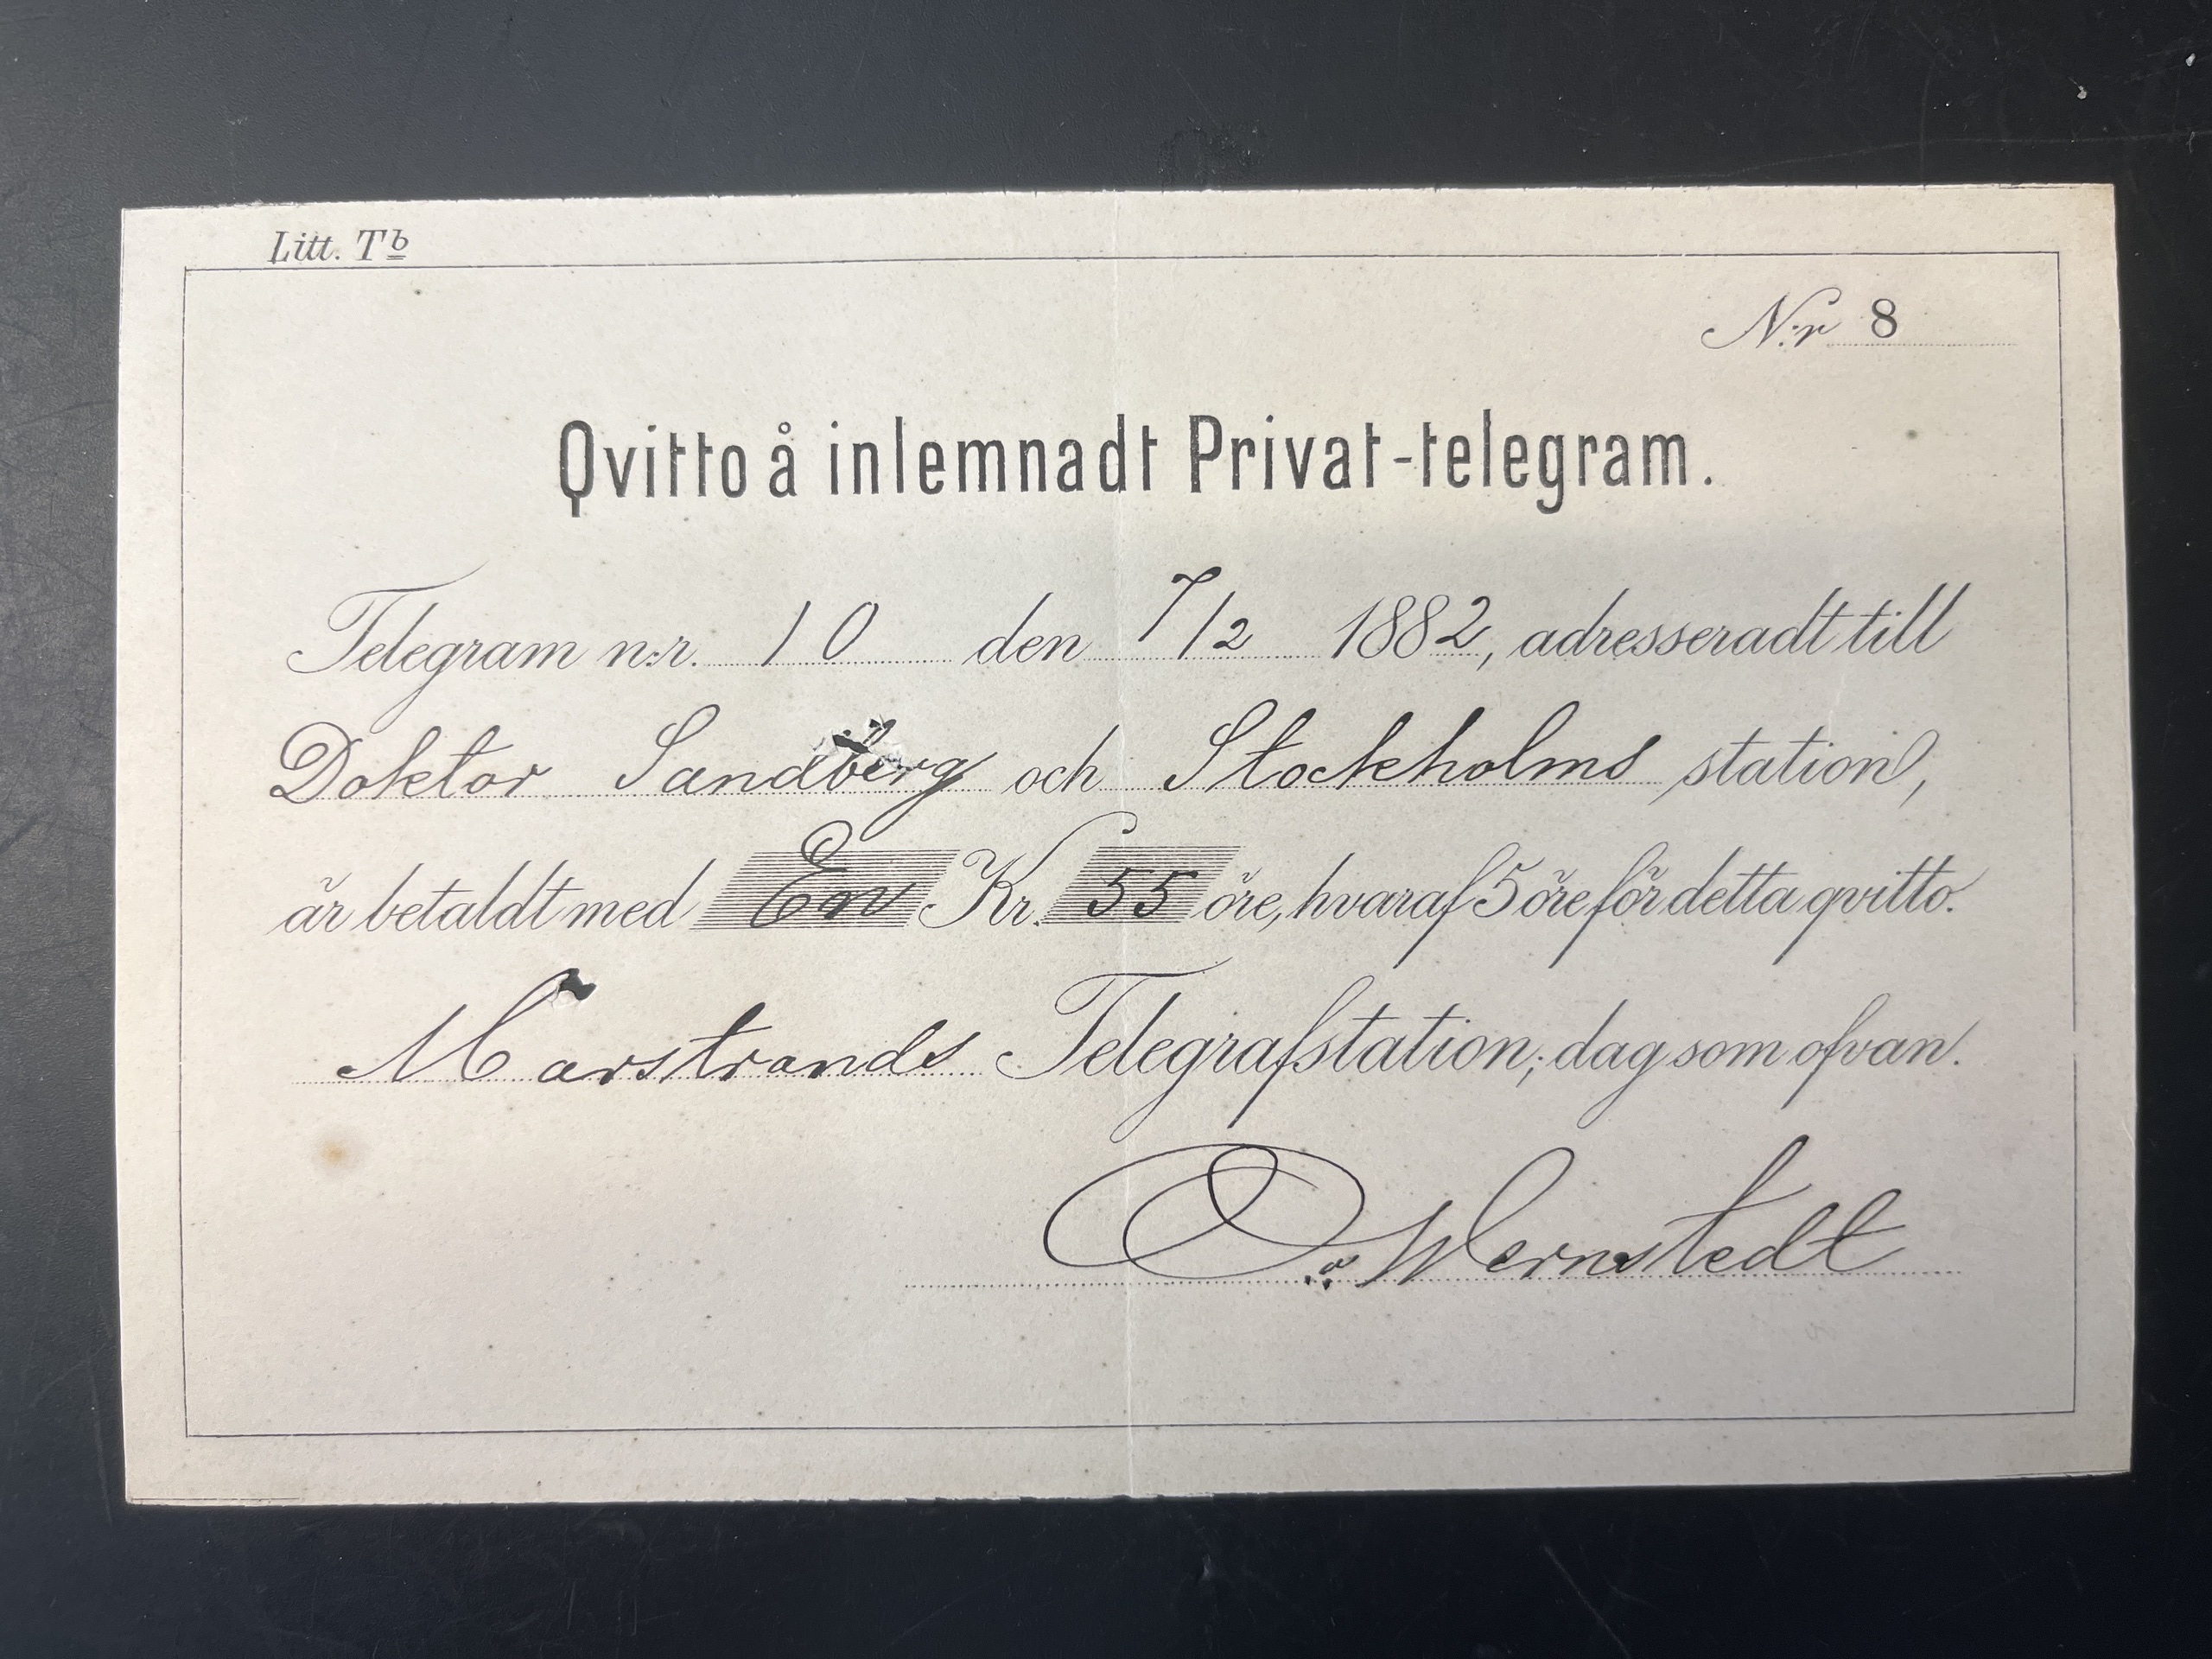 Litt. Tb
N:r 8
Qvitto å inlemnadt Privat-telegram.
Telegram n:r. 10 den 7/2 1882, adresseradt till
Doktor Sandberg och Stockholms station,
är betaldt med En Kr. 55 öre, hvaraf 5 öre för detta qvitto.
Marstrands Telegrafstation; dag som ofvan.
O. Wernstedt